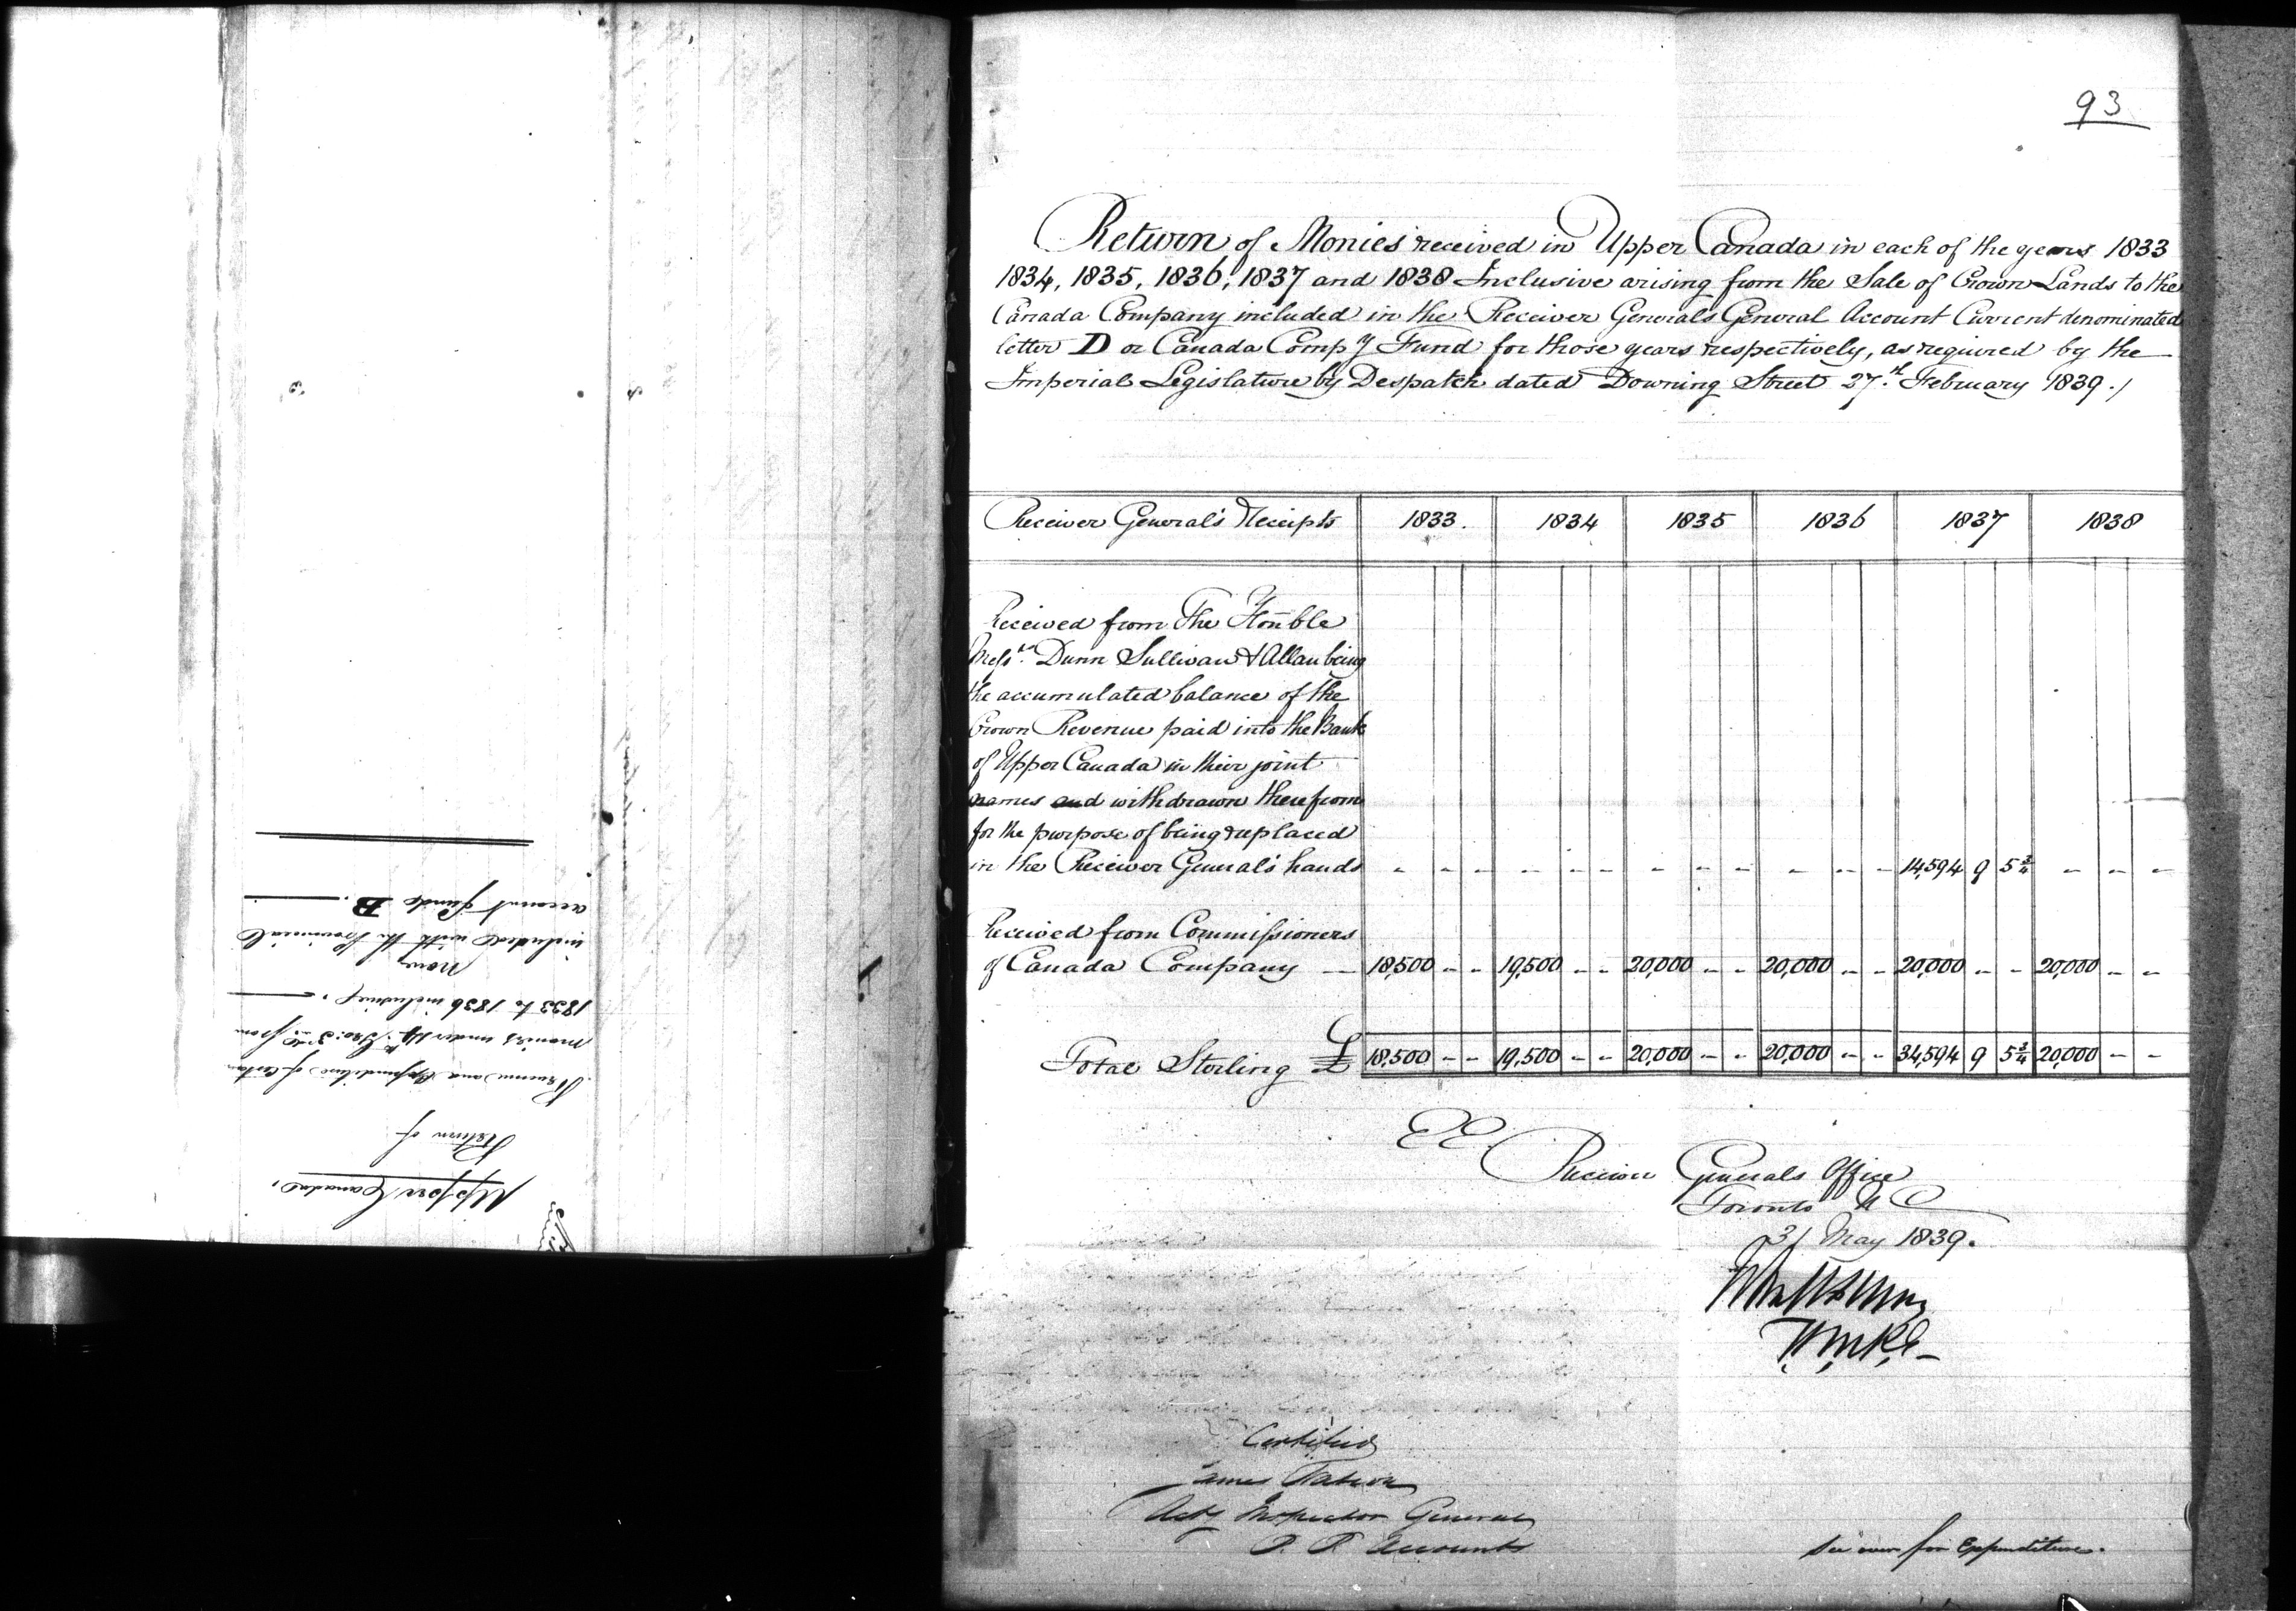 93
Return of Monies received in Upper Canada in each of the years 1833
1834, 1835, 1836, 1837 and 1838 Inclusive arising from the Sale of Crown Lands to the
Canada Company included in the Receiver Generals General Account Current denominated
letter D or Canada Compy Fund for those years respectively, as required by the
Imperial Legislature by Despatch dated Downing Street 27th February 1839./
Receiver General's Receipts 1833. 1834 1835 1836 1837 1838
Received from The Honble
Messrs Dunn Sullivan & Allan being
the accumulated balance of the
Crown Revenue paid into the Bank
of Upper Canada in their joint
names and withdrawn therefrom
for the purpose of being replaced
in the Receiver General's hands - - - - - - - - - - - - 14,594 9 5¾ - - -
Received from Commissioners
of Canada Company — 18,500 - - 19,500 - - 20,000 - - 20,000 - - 20,000 - - 20,000 - -
Total Sterling £ 18,500 - - 19,500 - - 20,000 - - 20,000 - - 34,594 9 5¾ 20,000 - -
EE
Receiver Generals Office
Toronto U C
31 May 1839.
H.M.R.G—
Certified
James
Actg Inspector General
P. P. Accounts
See over for Expenditure.
Upper Canada,
Return of
Revenue and Expenditure of Certain
monies under 14th Geo: 3rd from
1833 to 1836 inclusive, —
now
included with the Provincial
account Fund B. —